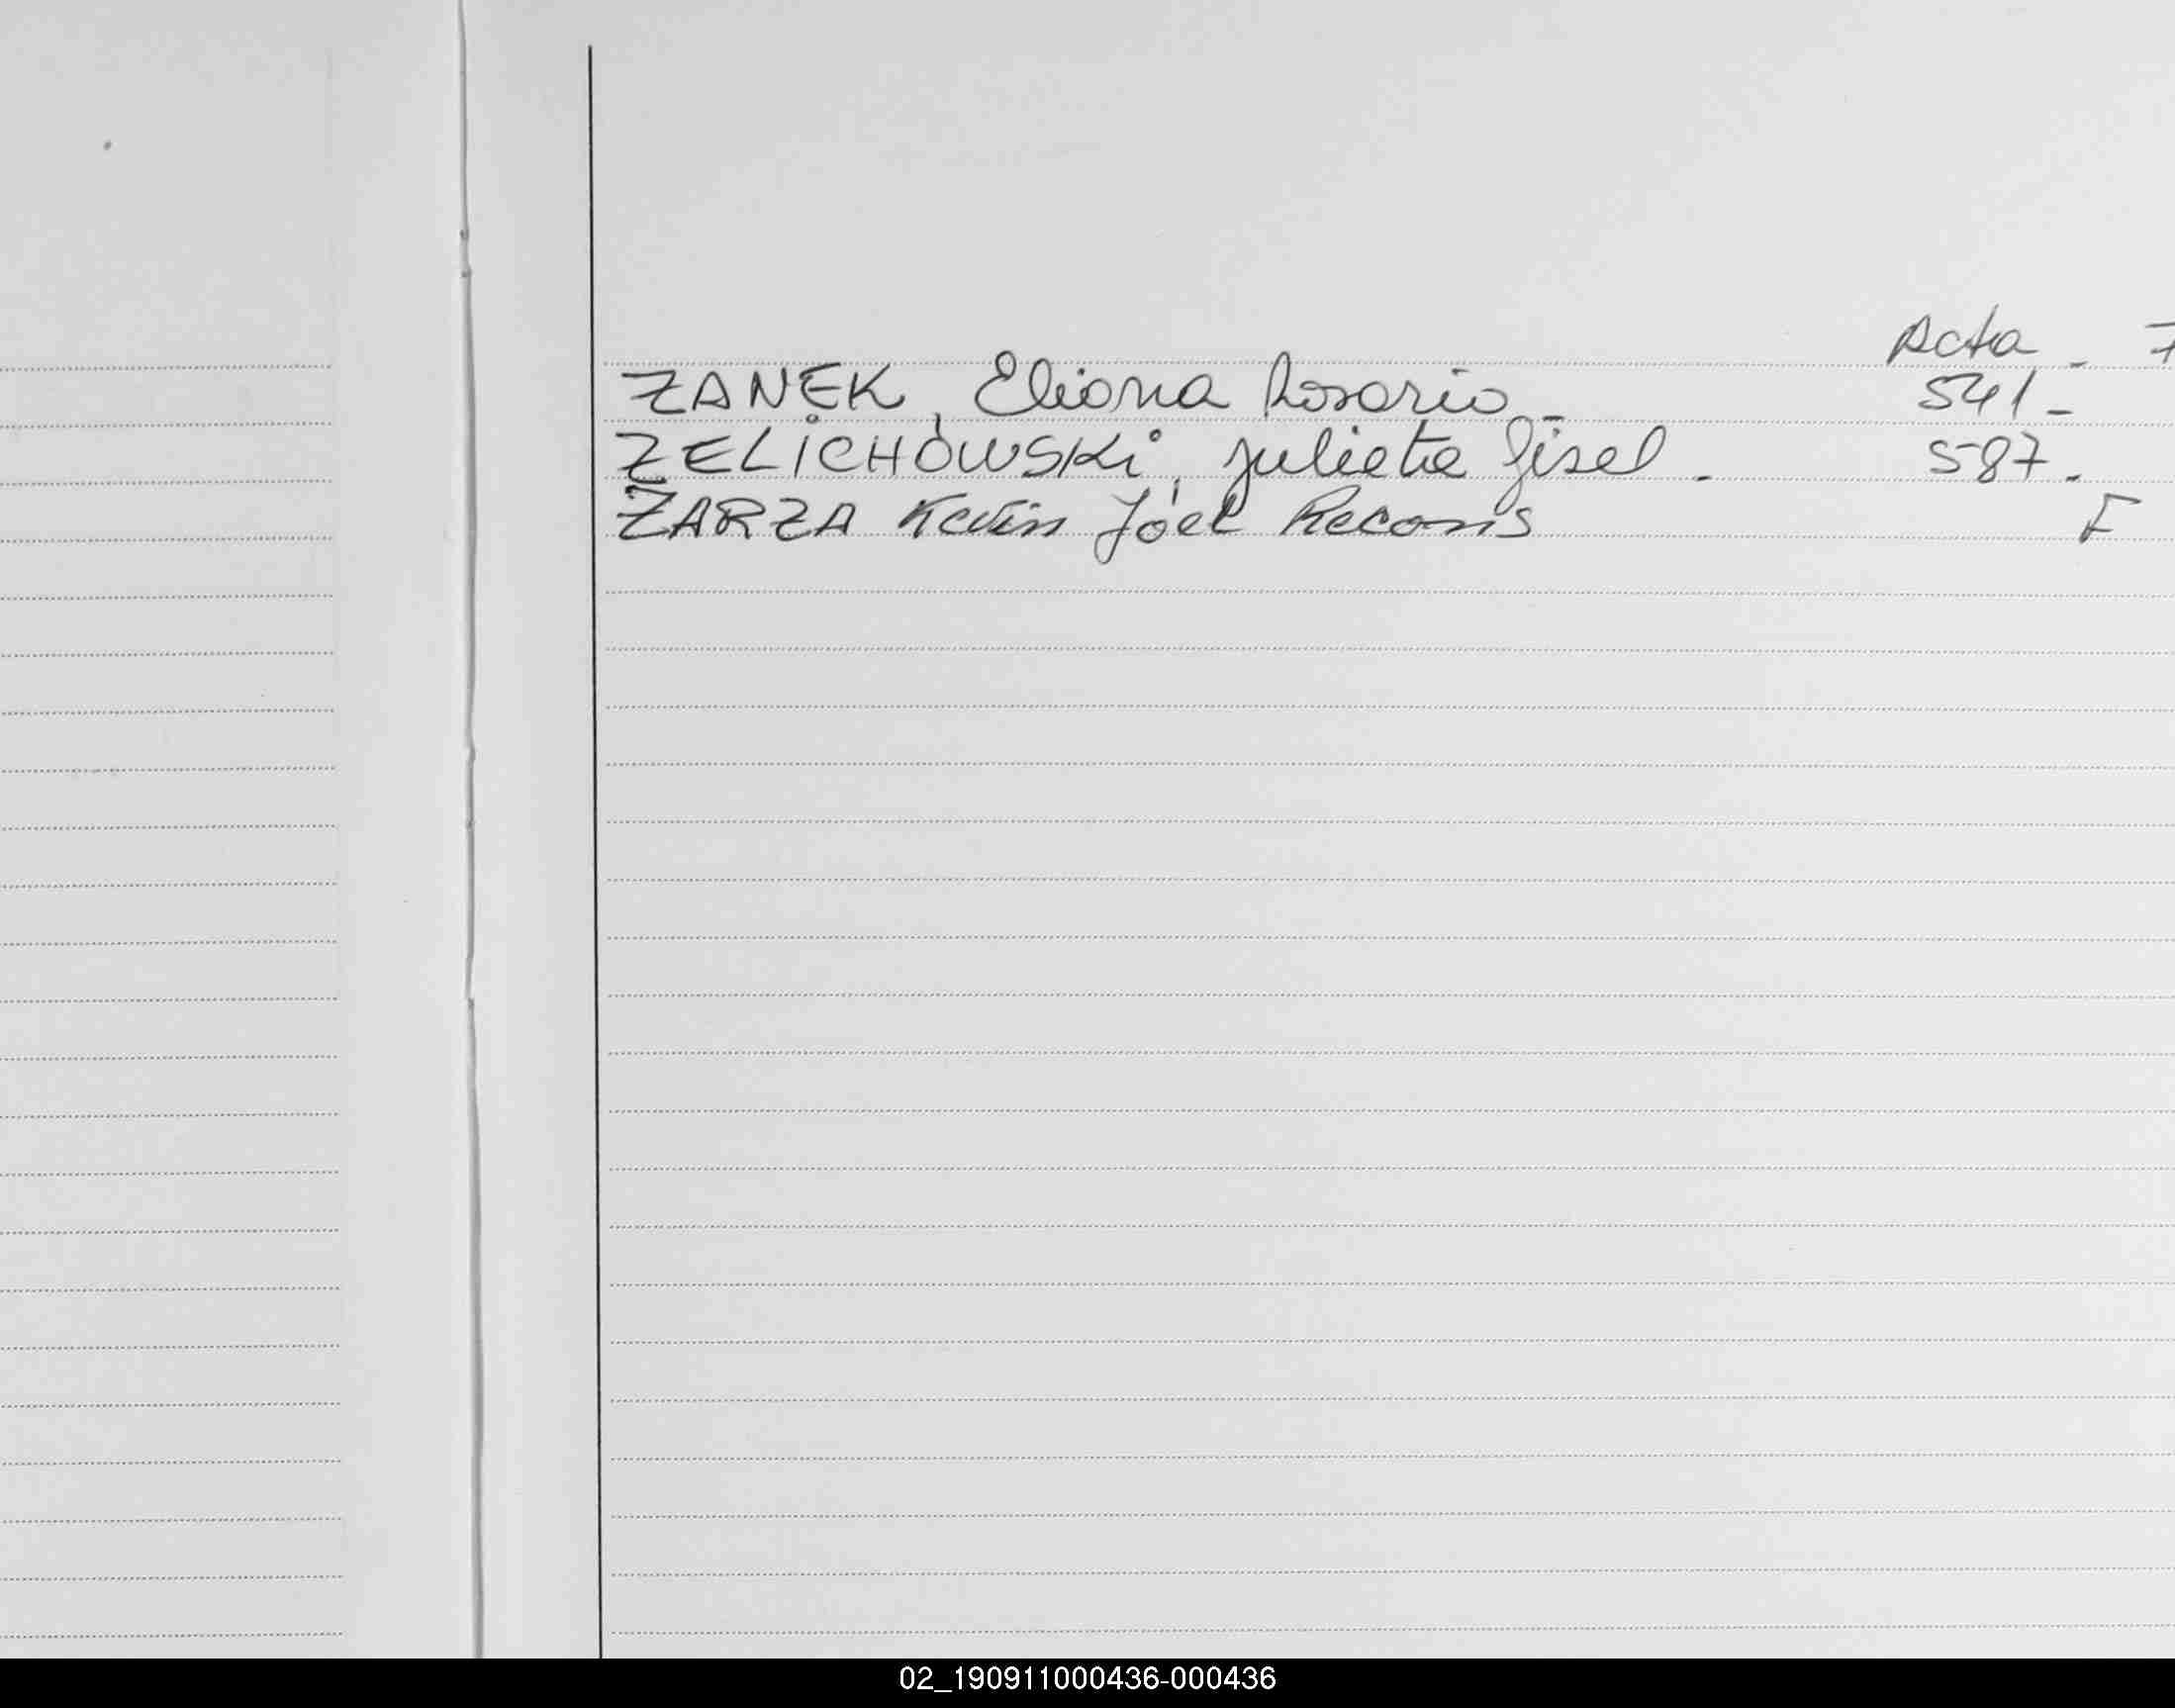 Acta - F
ZANEK, Eliana Rosario - 541 -
ZELICHOWSKI, Julieta Gisel. 587.
ZARZA Kevin Joel Recons F
02_190911000436-000436